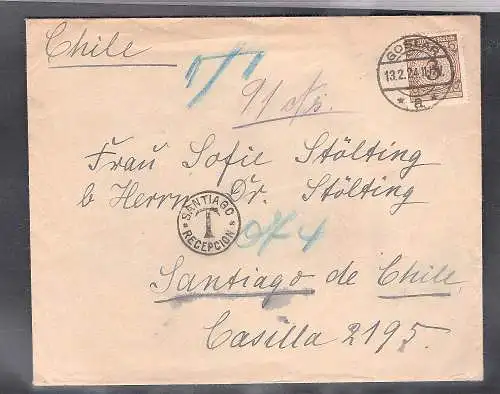 Chile
GOSLAR
13.2.24
* a *
3
Frau Sofie Stölting
b Herrn Dr. Stölting
SANTIAGO
T
RECEPCION
Santiago de Chile
Casilla 2195.